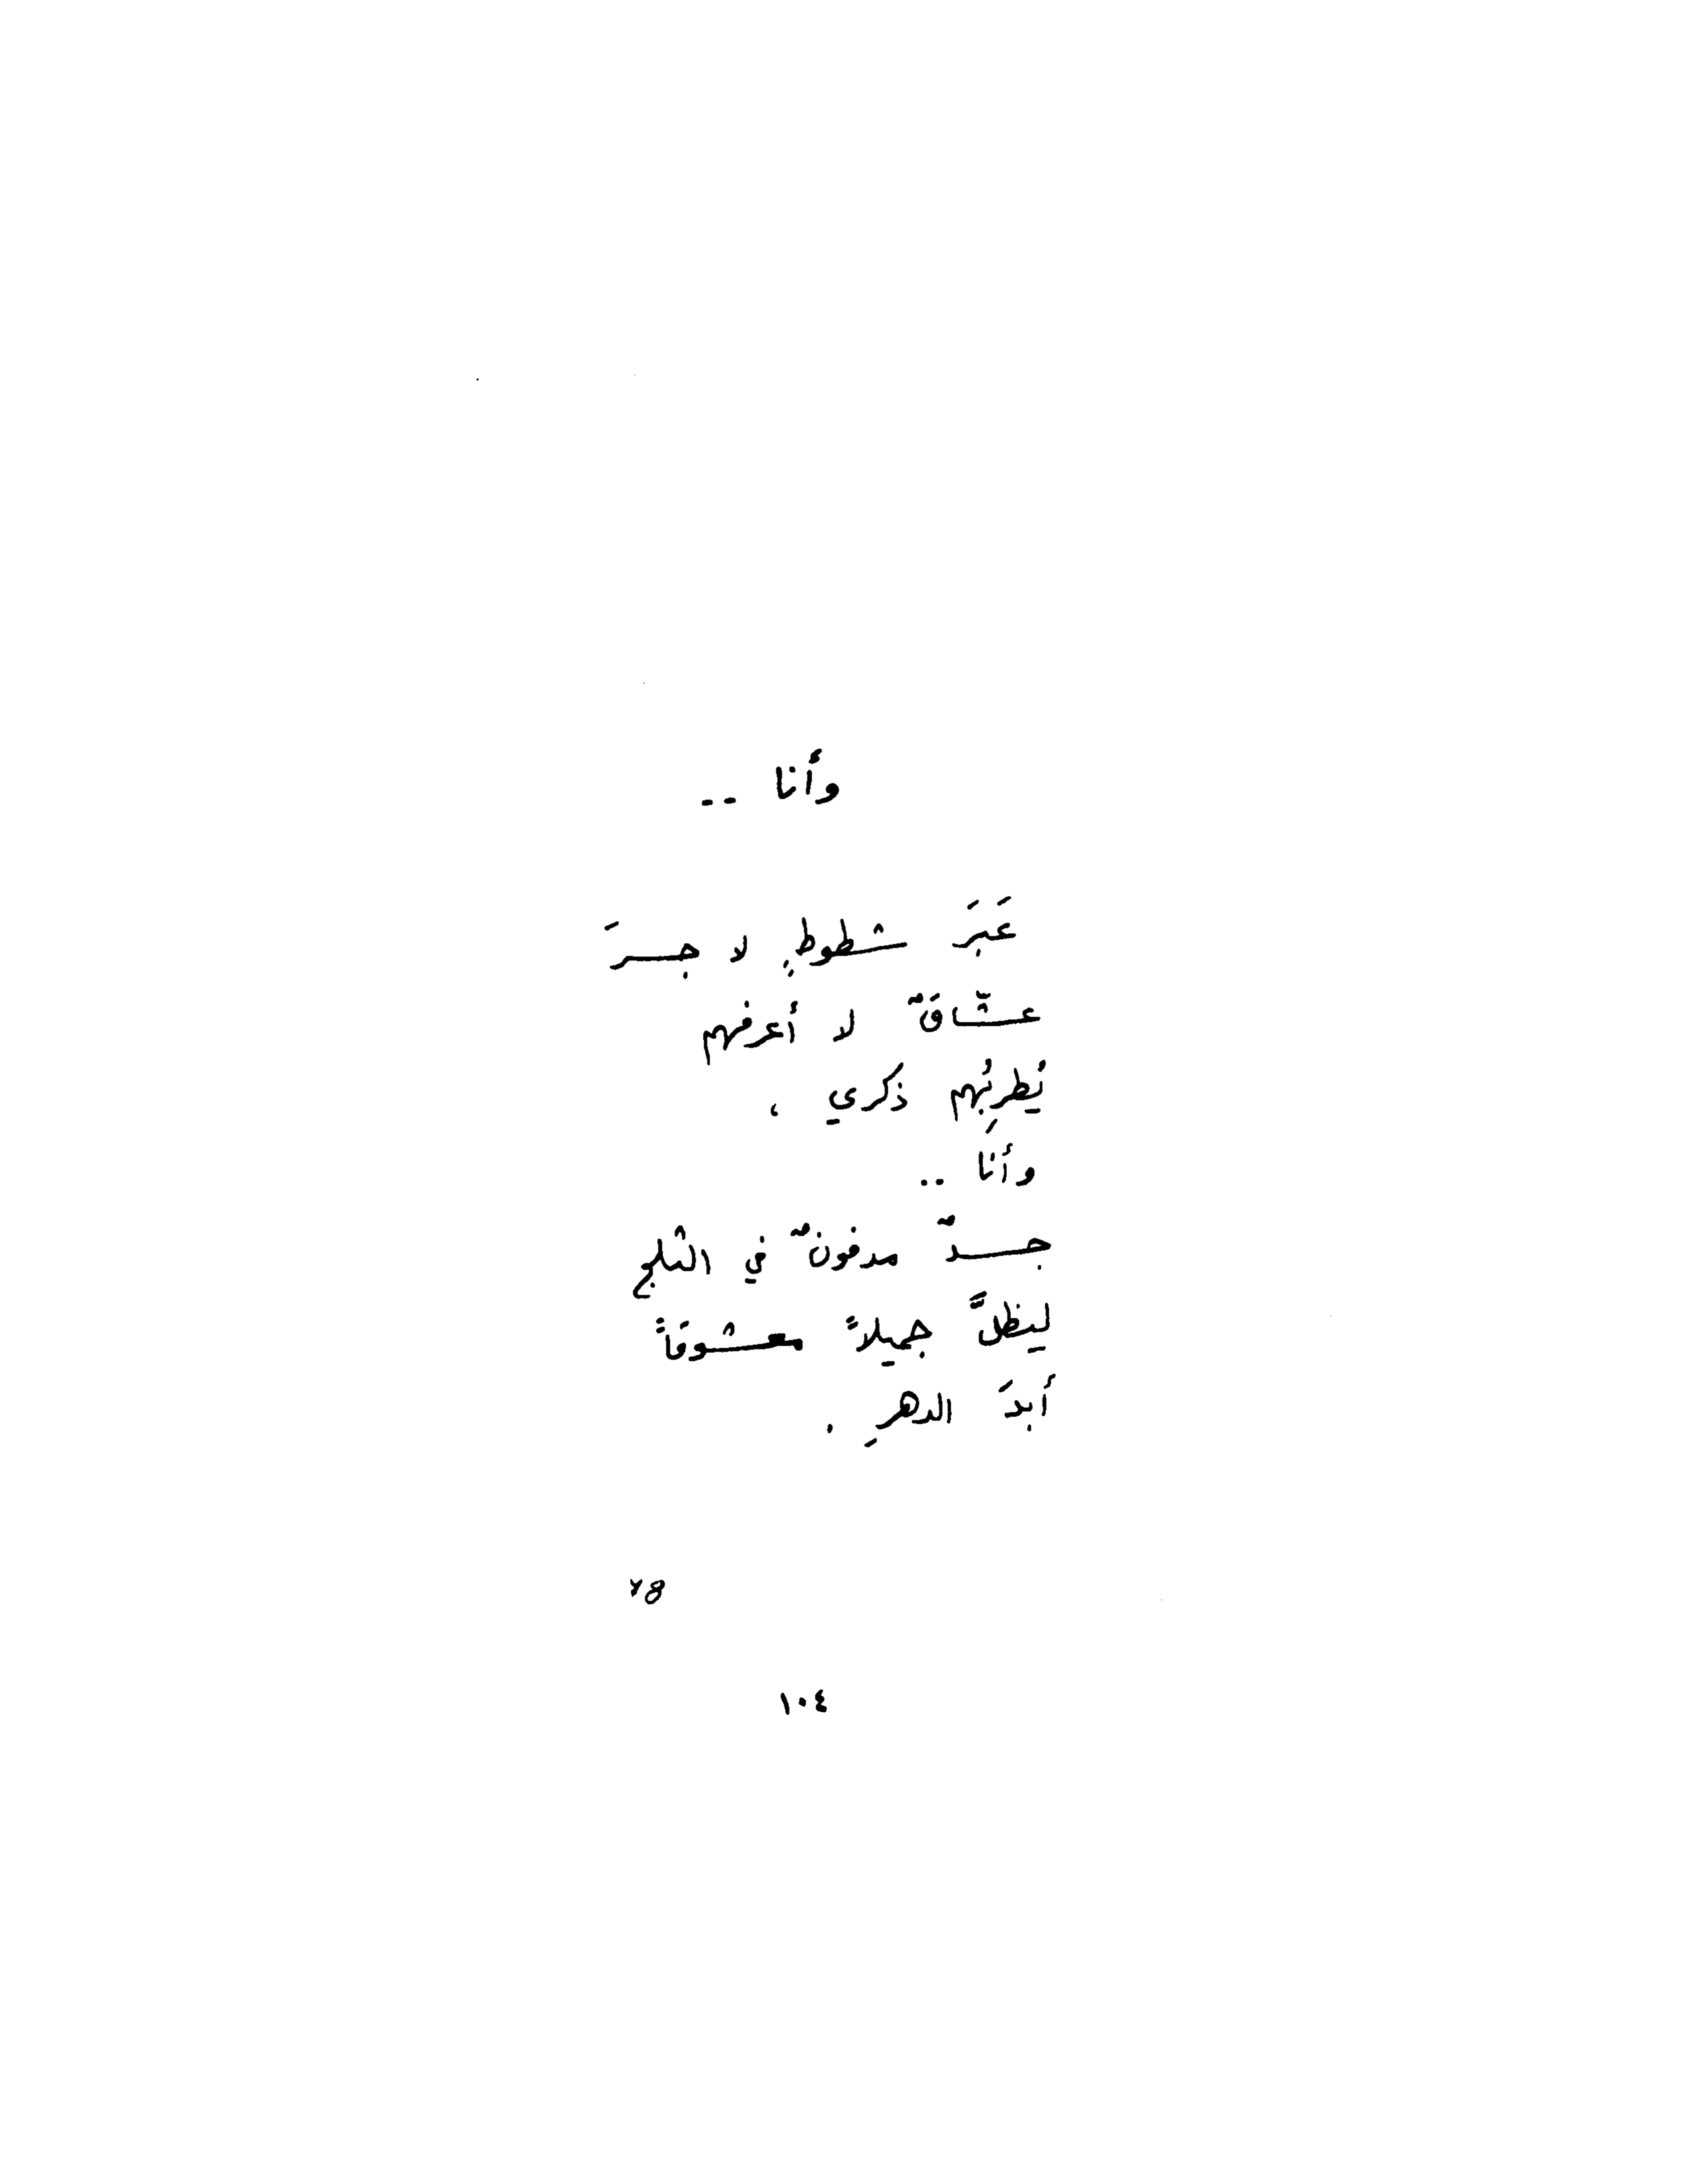 وأنا ..
عَبَرَ شطوطٍ لا جسرَ
عشّاقٌ لا أعرفهم
يُطرِبُهم ذكري ،
وأنا ..
جسدٌ مدفونٌ في الثلج
ليظلَّ جميلاً معشوقاً
أبدَ الدهرِ .
١٠٤